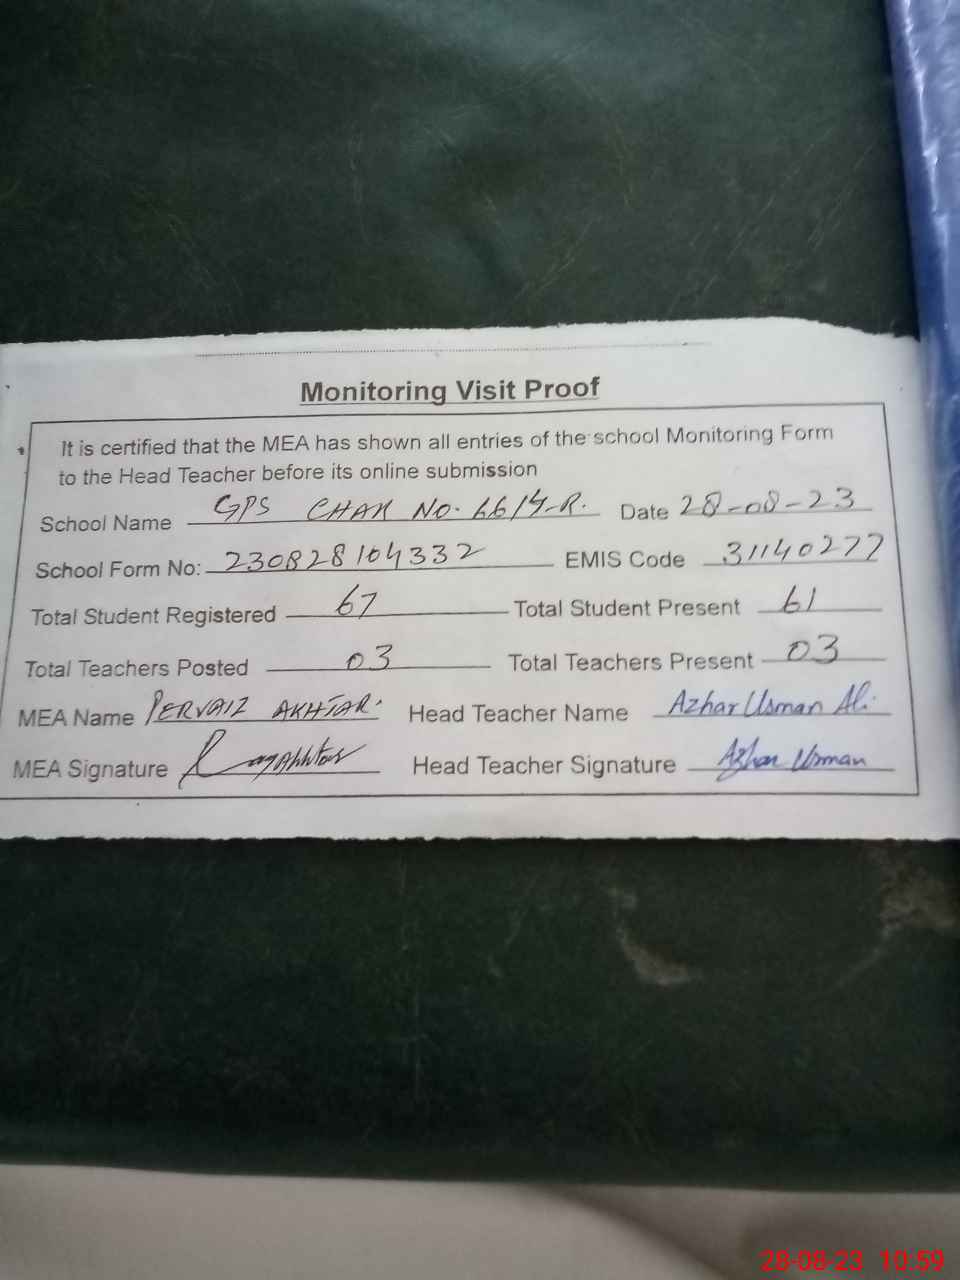 Monitoring Visit Proof
It is certified that the MEA has shown all entries of the school Monitoring Form
to the Head Teacher before its online submission
School Name GPS CHAK NO. 66/4-R. Date 28-08-23
School Form No: 230828104332 EMIS Code 31140277
Total Student Registered 67 Total Student Present 61
Total Teachers Posted 03 Total Teachers Present 03
MEA Name PERVAIZ AKHTAR. Head Teacher Name Azhar Usman Ali
MEA Signature Head Teacher Signature Azhar Usman
28-08-23 10:59